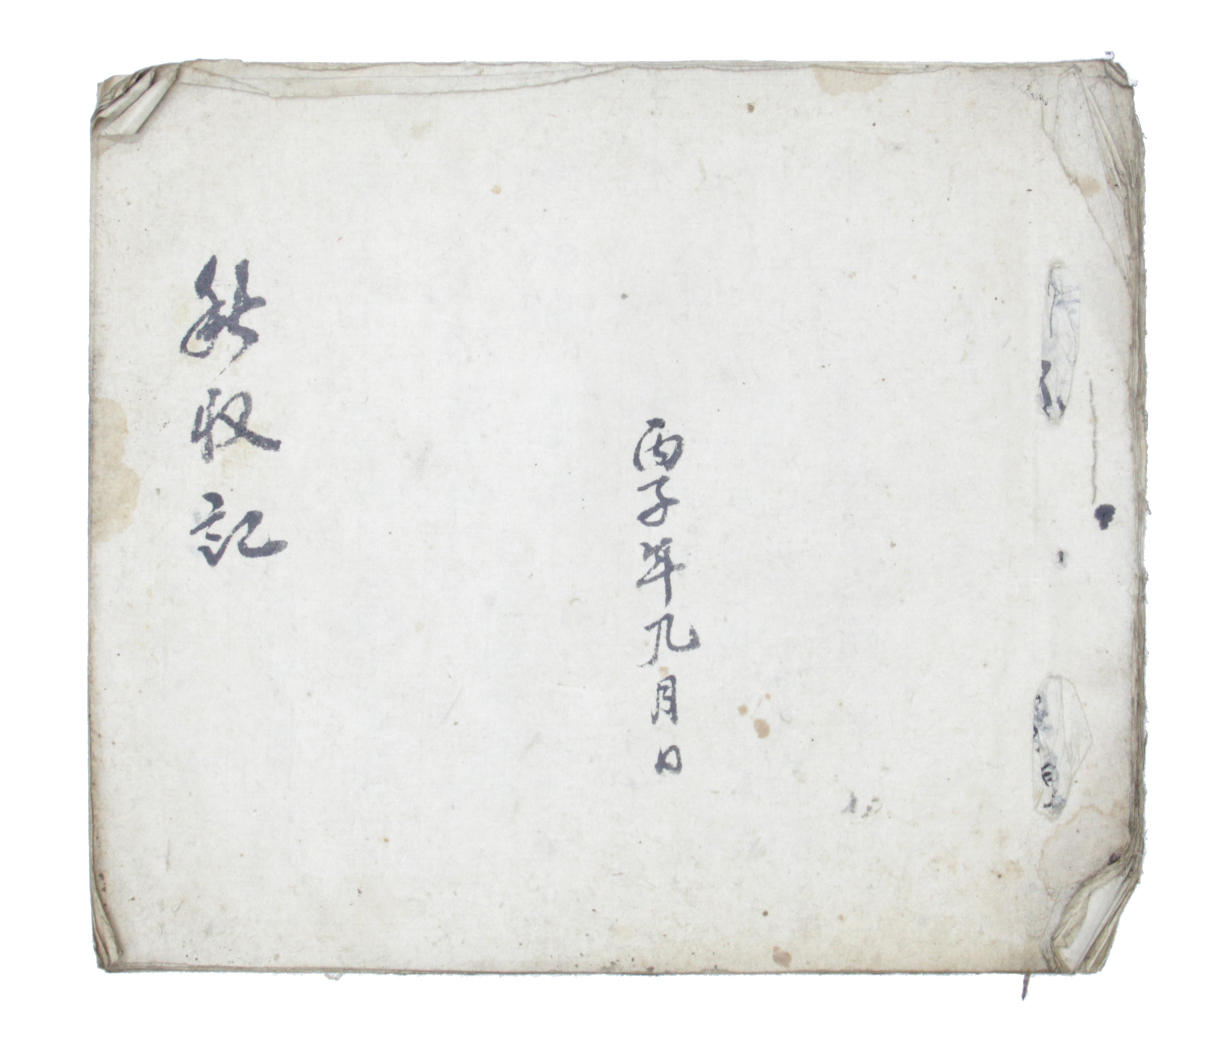 丙子年九月日
秋收記